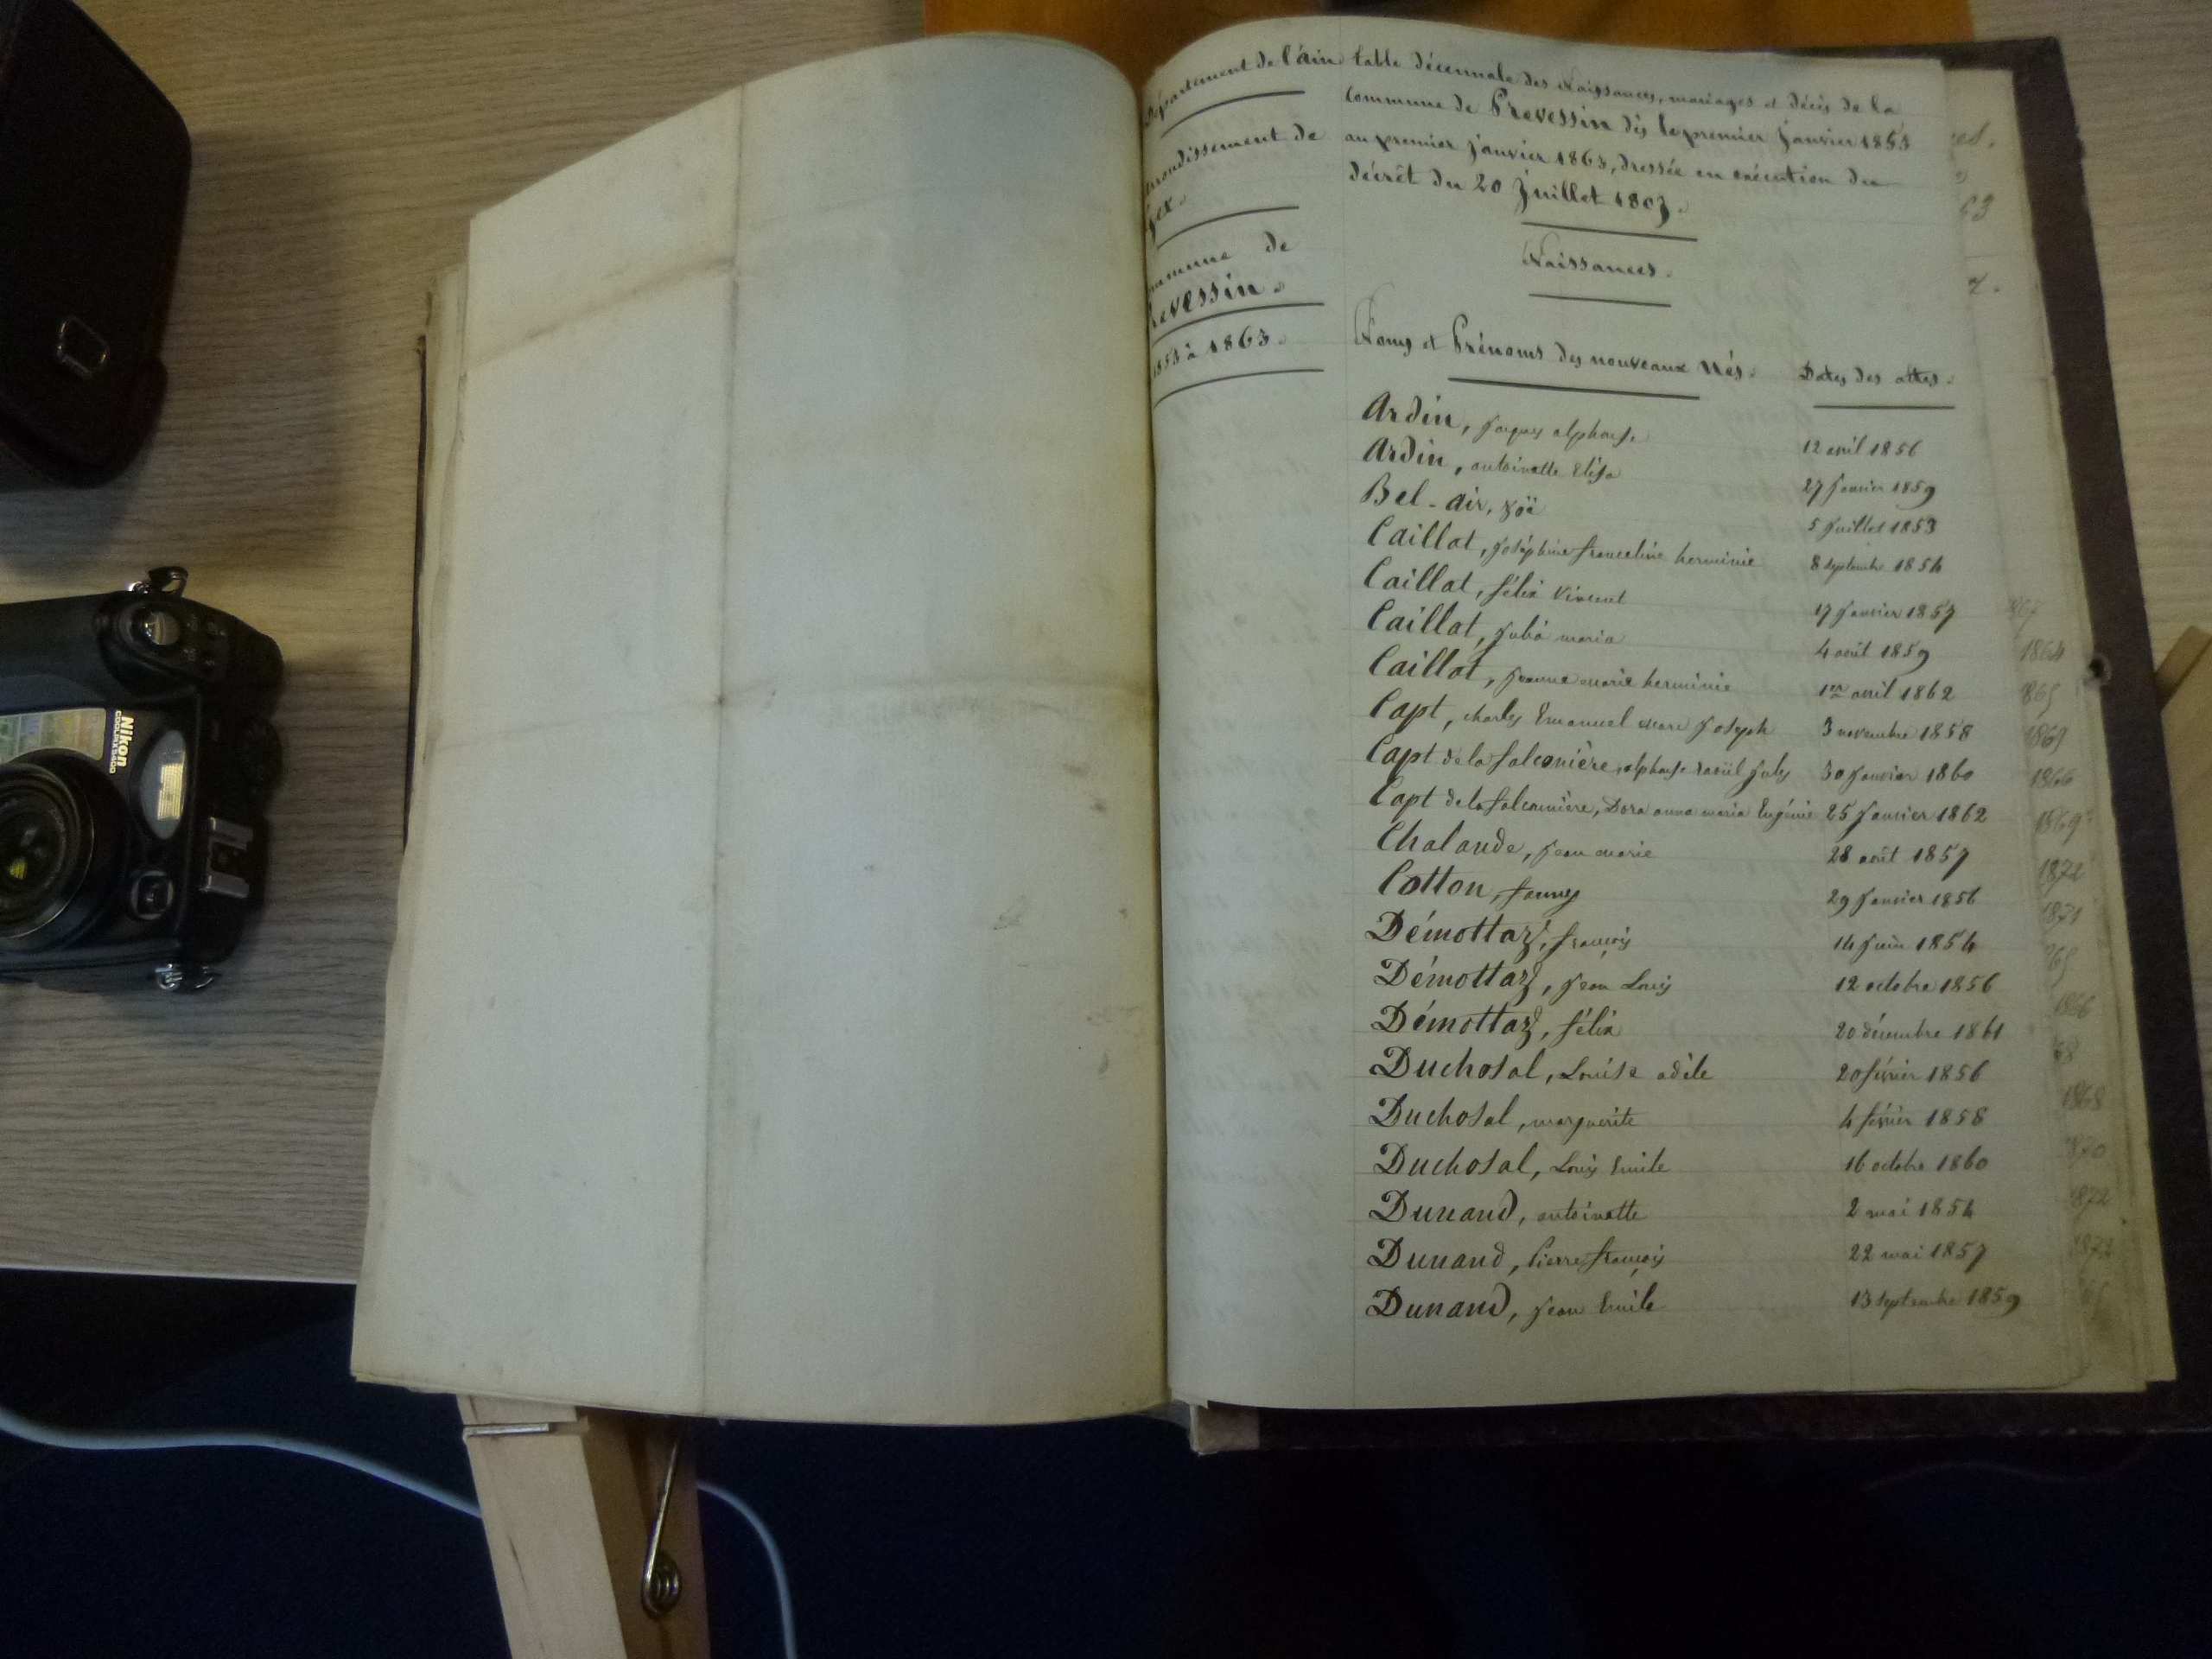 Département de l'Ain
arrondissement de
Gex.
Commune de
Prevessin.
1853 à 1863.
table décennale des Naissances, mariages et décès de la
Commune de Prevessin dès le premier janvier 1853
au premier janvier 1863, dressée en exécution du
décrêt du 20 juillet 1807.
Naissances.
Noms et Prénoms des nouveaux Nés. Dates des actes.
Ardin, jaques alphonse 12 avril 1856
Ardin, antoinette Elisa 27 janvier 1859
Bel-air, zoë 5 juillet 1853
Caillat, joséphine franceline herminie 8 septembre 1854
Caillat, félix Vincent 17 janvier 1857
Caillat, julia maria 4 août 1859
Caillat, jeanne marie herminie 1er avril 1862
Capt, charles Emanuel marc joseph 3 novembre 1858
Capt de la falconière, alphonse raoül jules 30 janvier 1860
Capt de la falconnière, Dora anna maria Eugénie 25 janvier 1862
Chalande, jean marie 28 août 1857
Cotton, fanny 29 janvier 1856
Démottaz, françois 14 juin 1854
Démottaz, jean Louis 12 octobre 1856
Démottaz, félix 20 décembre 1861
Duchosal, Louise adèle 20 février 1856
Duchosal, marguerite 4 février 1858
Duchosal, Louis Emile 16 octobre 1860
Dunand, antoinette 2 mai 1854
Dunand, Pierre françois 22 mai 1857
Dunand, jean Emile 13 septembre 1859
1864
1869
1866
1869
1872
1871
1866
1868
1872
Nikon
COOLPIX 5400